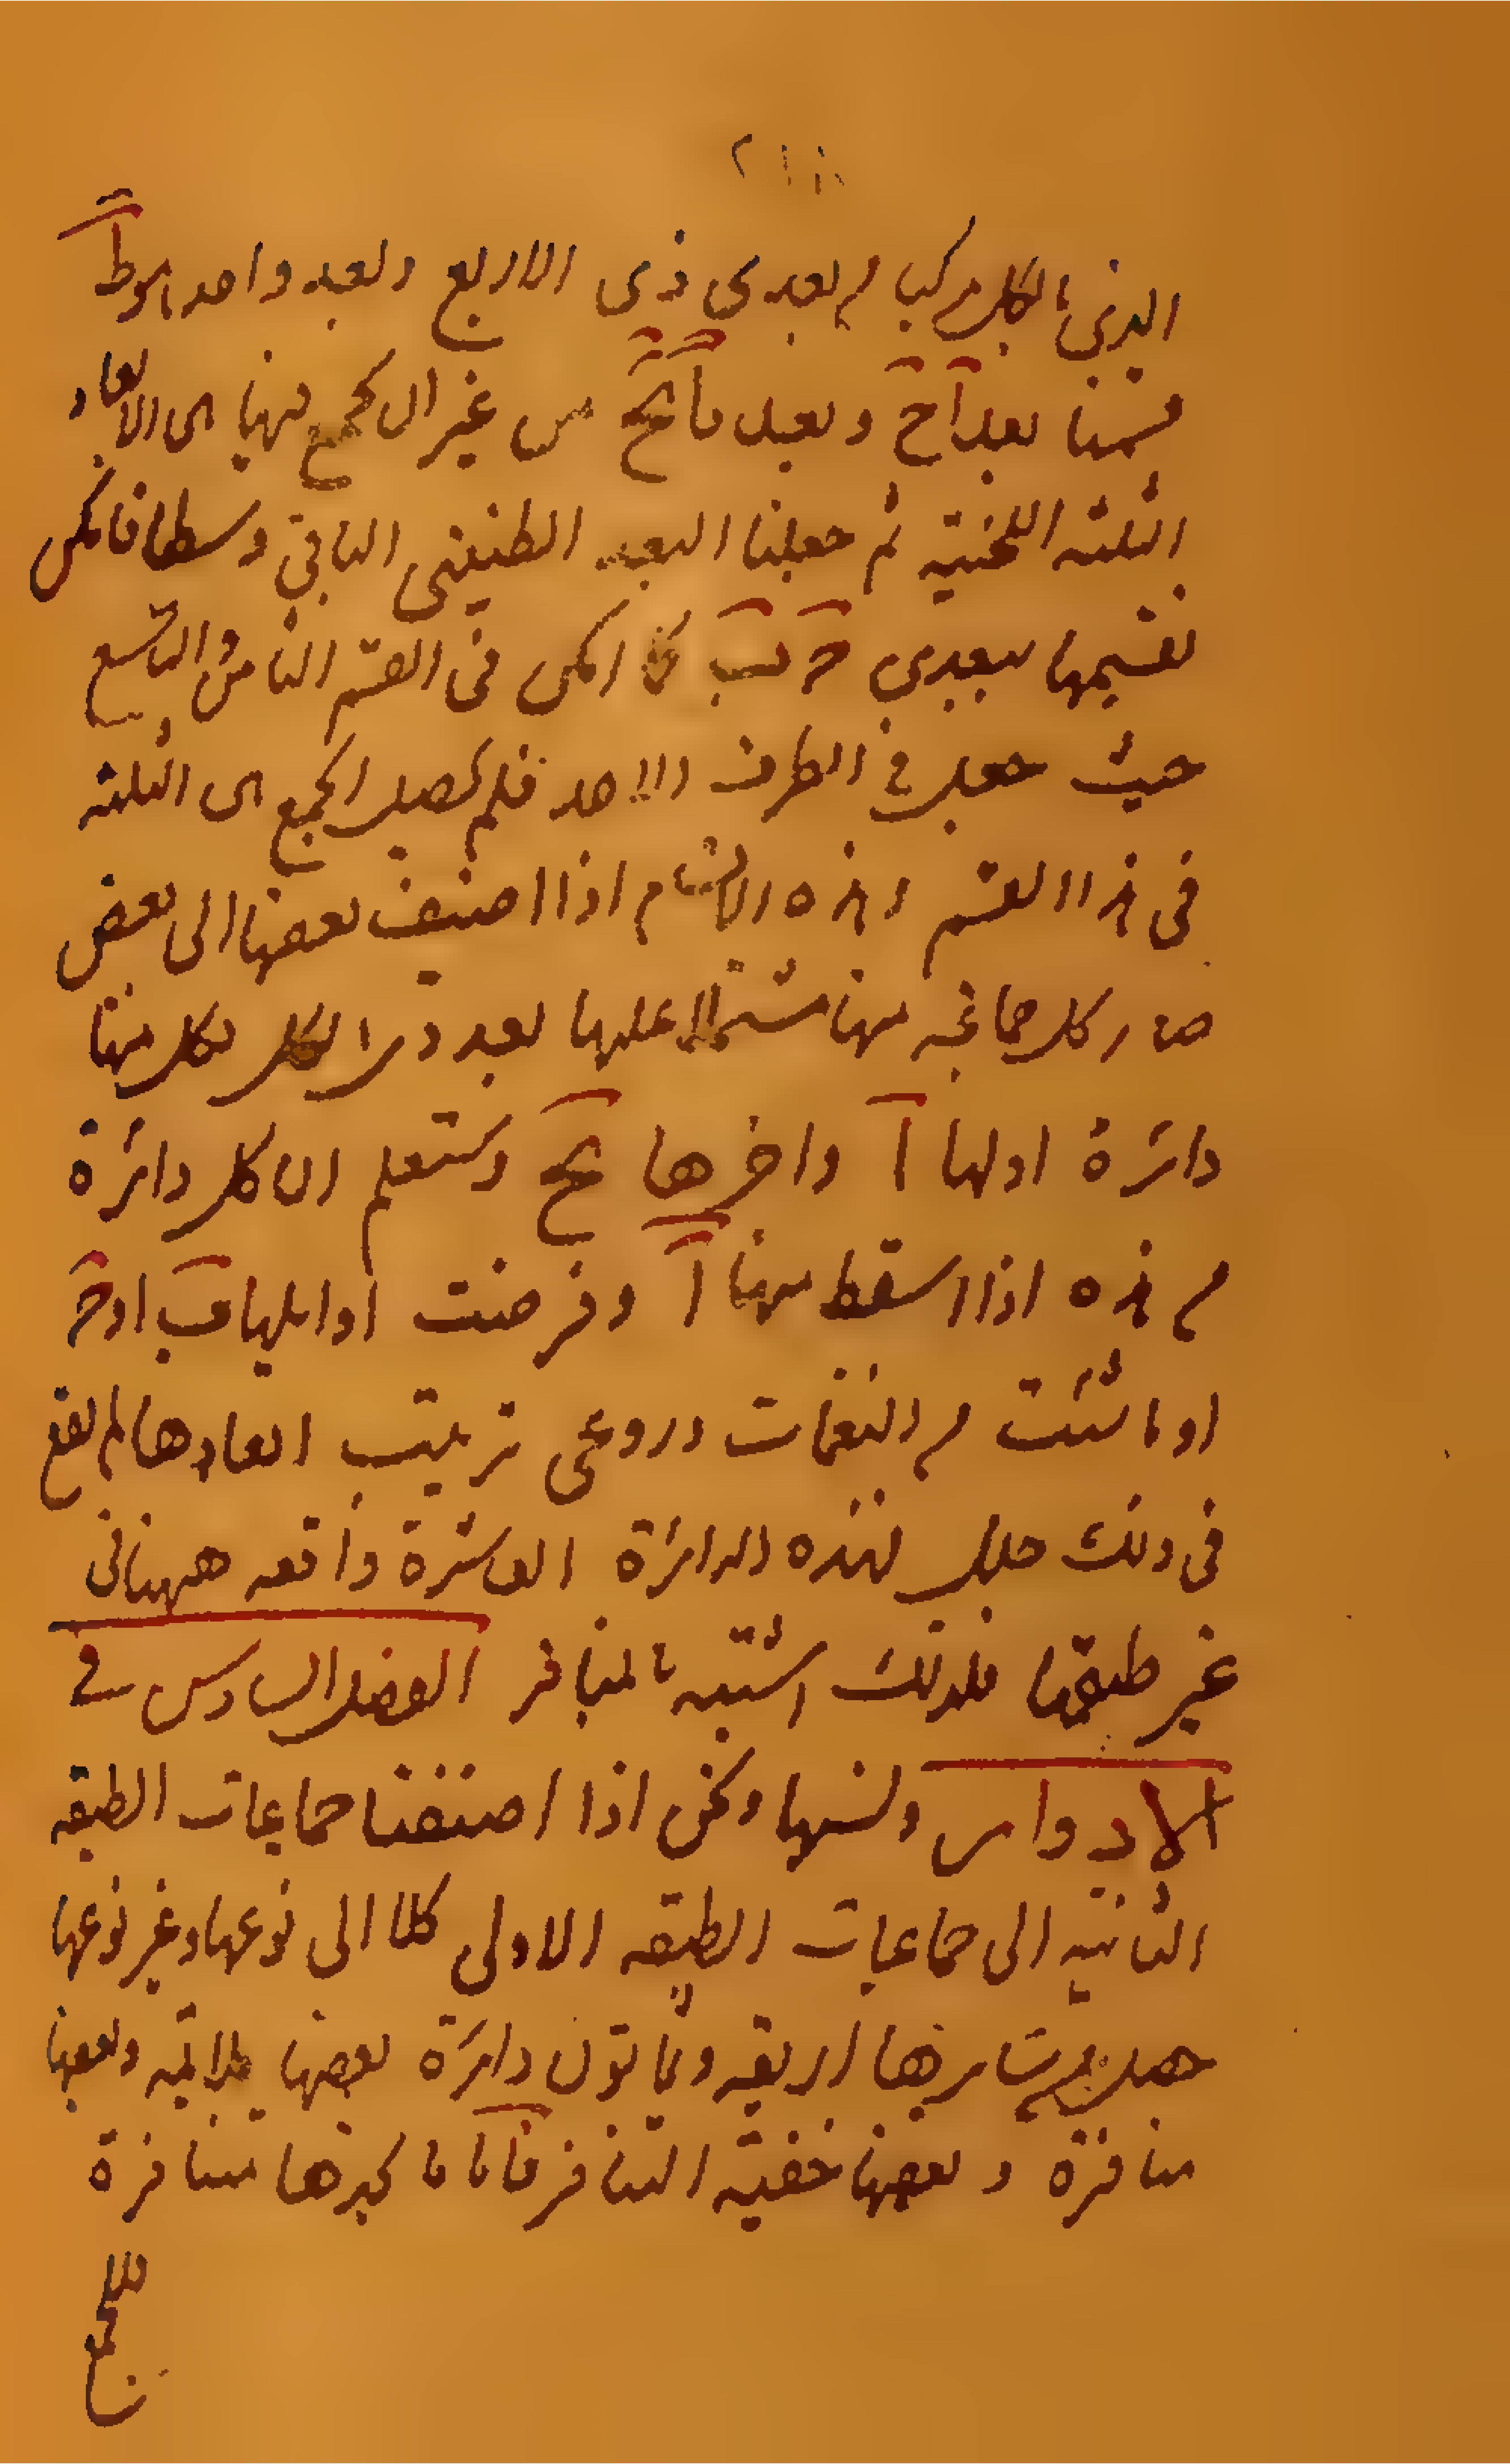 ٢١١
الذي بالكل مركب من بعدي ذي الاربع وبعد واحد هو ط
قسمنا بعد آح وبعد يا يح من غير ان يجمع فيهما بين الابعاد
الثلثه اللحنية ثم جعلنا البعد الطنيني الباقي وسطا فامكن
تقسيمها ببعدي ج ب كما امكن في القسم الثامن والتاسع
حيث جعل في الطرف الاحد فلم يحصل الجمع بين الثلثه
في هذا القسم وهذه الاقسام اذا اضيف بعضها الى بعض
صار كل جماعة منها مشتملا عليها بعد ذي الكل وكل منها
دائرة اولها آ واخرها يح وستعلم ان كل دائرة
من هذه اذا اسقط منها آ وفرضت اوايلها ب او ج
او ما شئت من النغمات وروعي ترتيب ابعادها لم يقع
في ذلك خلل فهذه الدائرة العاشرة واقعه ههنا في
غير طبقتها فلذلك اشتبه بالمتنافر الفصل السادس في
الادوار ونسبها ونحن اذا اضفنا جماعات الطبقه
الثانية الى جماعات الطبقه الاولى كلا الى نوعها وغير نوعها
حصل من سايرها اربعه وثمانون دائرة بعضها ملائمه وبعضها
متنافرة وبعضها خفية التنافر فاما ما نجدها متنافرة
فللجمع